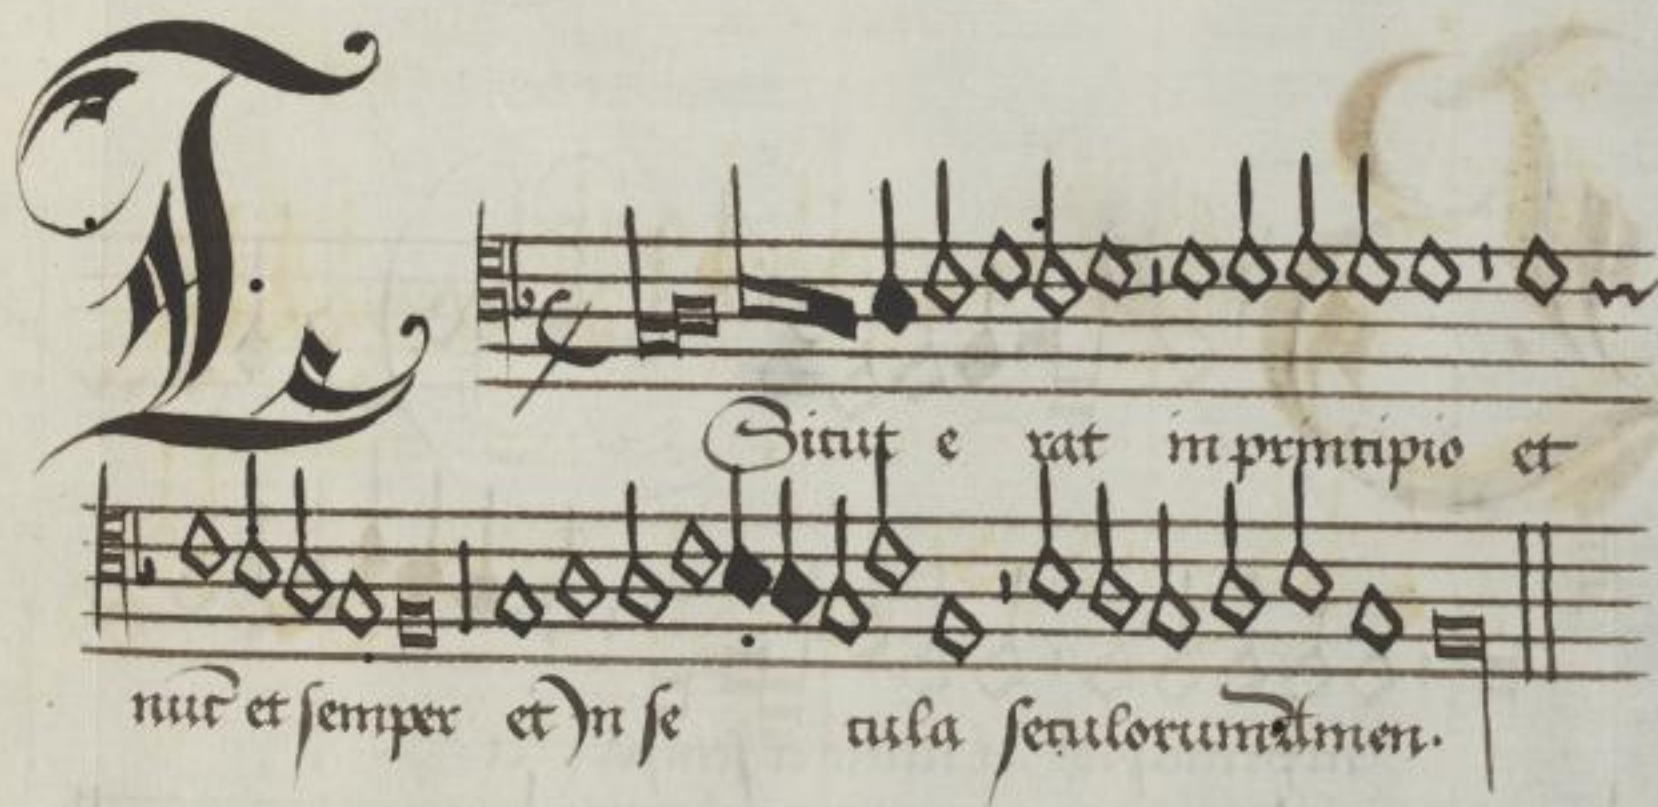 T
Sicut e rat in principio et
nūc et semper et In se cula seculorum Amen.